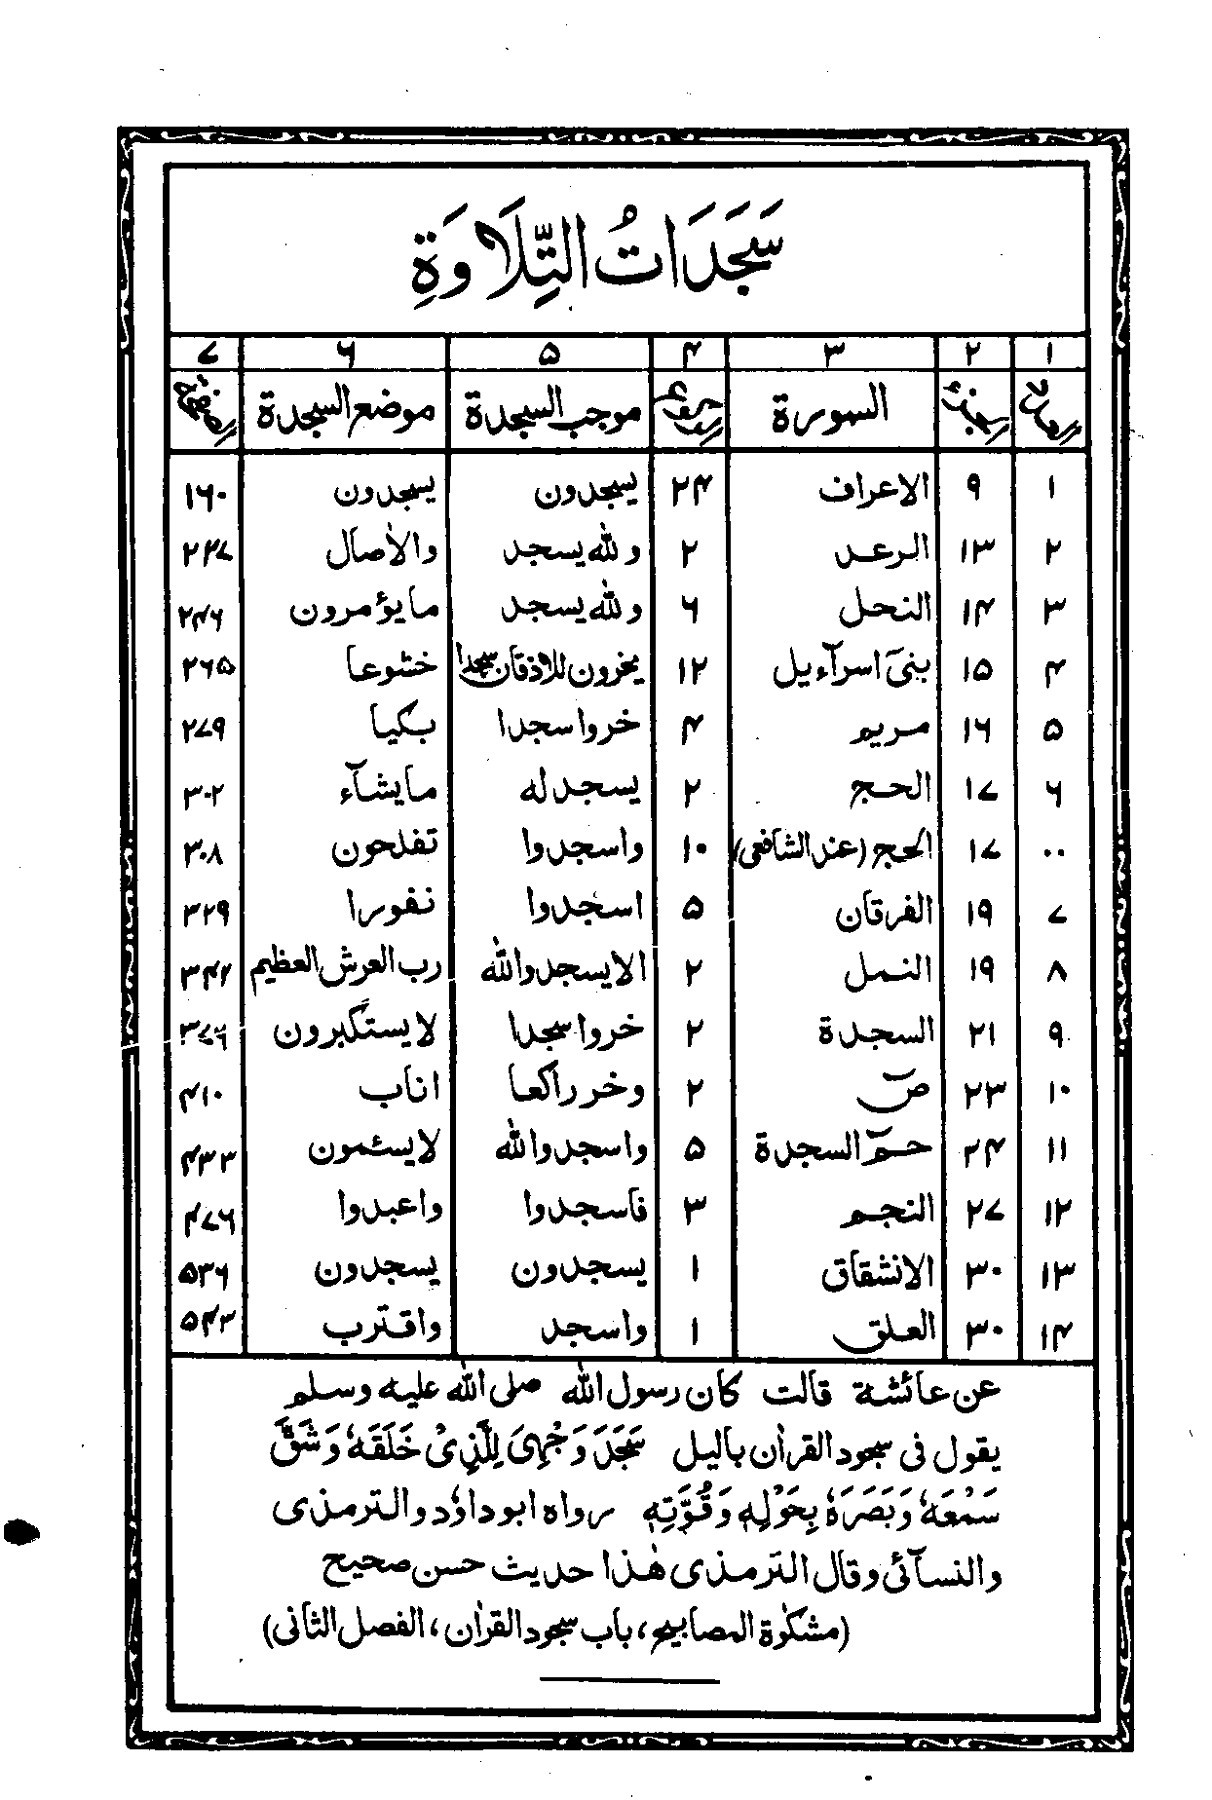 سَجَدَاتُ التِّلَاوَةِ
۱ ۲ ۳ ۴ ۵ ۶ ۷
العدد الجزء السورة الركوع موجب السجدة موضع السجدة الصفحة
۱ ۹ الاعراف ۲۴ يسجدون يسجدون ۱۶۰
۲ ۱۳ الرعد ۲ ولله يسجد والاٰصال ۲۲۷
۳ ۱۴ النحل ۶ ولله يسجد مايؤمرون ۲۴۶
۴ ۱۵ بنیٓ اسرآءيل ۱۲ يخرون للاذقان سجدا خشوعا ۲۶۵
۵ ۱۶ مريم ۴ خروا سجدا بكيا ۲۷۹
۶ ۱۷ الحج ۲ يسجد له مايشآء ۳۰۲
۰۰ ۱۷ الحج (عند الشافعی) ۱۰ واسجدوا تفلحون ۳۰۸
۷ ۱۹ الفرقان ۵ اسجدوا نفورا ۳۲۹
۸ ۱۹ النمل ۲ الا يسجدوا لله رب العرش العظيم ۳۴۲
۹ ۲۱ السجدة ۲ خروا سجدا لا يستكبرون ۳۷۶
۱۰ ۲۳ صٓ ۲ وخر راكعا اناب ۴۱۰
۱۱ ۲۴ حٰمٓ السجدة ۵ واسجدوا لله لا يسئمون ۴۳۳
۱۲ ۲۷ النجم ۳ فاسجدوا واعبدوا ۴۷۶
۱۳ ۳۰ الانشقاق ۱ يسجدون يسجدون ۵۳۶
۱۴ ۳۰ العلق ۱ واسجد واقترب ۵۴۳
عن عائشة قالت كان رسول الله صلی الله عليه وسلم
يقول فی سجود القراٰن باليل سَجَدَ وَجْهِیَ لِلَّذِیْ خَلَقَهٗ وَشَقَّ
سَمْعَهٗ وَبَصَرَهٗ بِحَوْلِهٖ وَقُوَّتِهٖ رواه ابو داوٗد والترمذی
والنسآئی وقال الترمذی هٰذا حديث حسن صحيح
(مشكٰوة المصابيح، باب سجود القراٰن، الفصل الثانی)